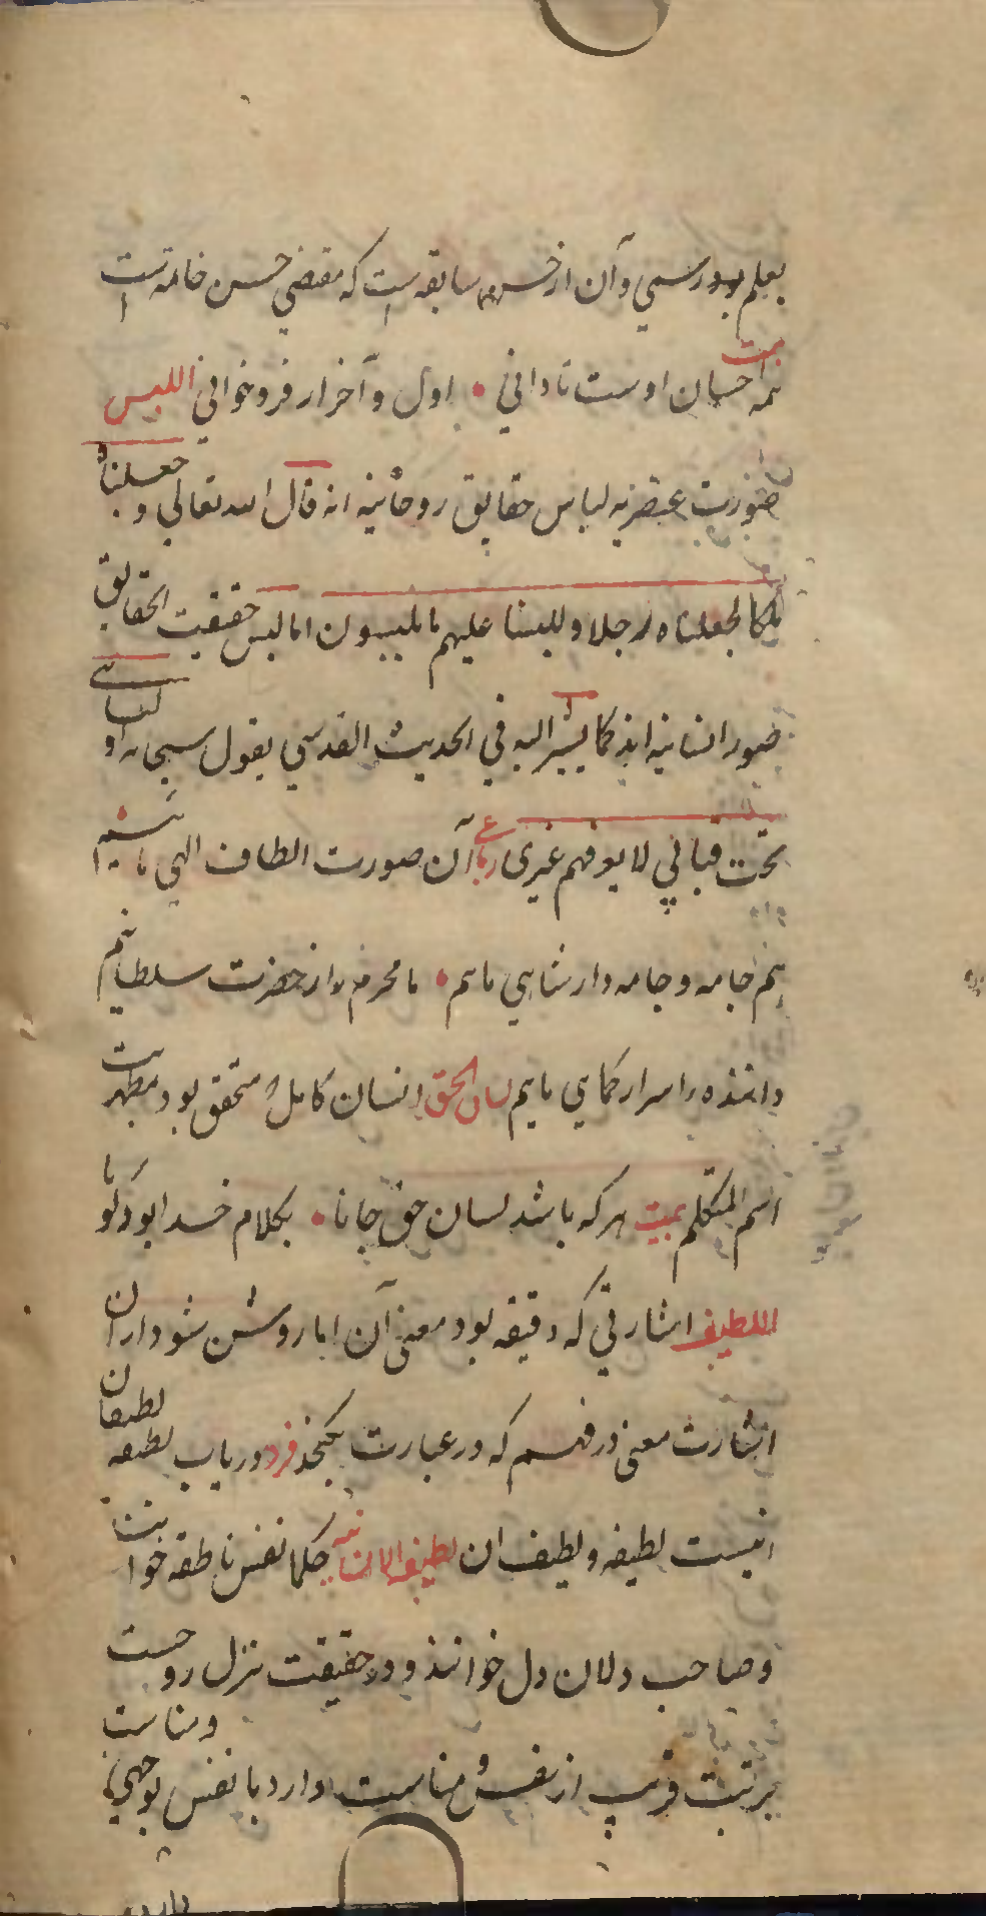 بعلم بدرسمی و آن از حسن سابقه است که مقتضی حسن خاتمه است
بیت همه احسان اوست تا دانی • اول و آخر ار فرو خوانی اللبس
صورت عنصریه لباس حقایق روحانیه اند قال الله تعالی و جعلناه
ملکا لجعلناه رجلا و للبسنا علیهم ما یلبسون اما لبس حقیقت الحقایق
صور انسانیه اند کما یشیر الیه فی الحدیث القدسی یقول سبحانه اولیائی
تحت قبائی لا یعرفهم غیری رباعی آن صورت الطاف الهی مائیم
هم جامه و جامه دار شاهی مائیم • ما محرم راز حضرت سلطانیم
داننده اسرار کماهی مائیم لسان الحق انسان کامل متحقق بود بمظهریت
اسم المتکلم بیت هر که باشد لسان حق جانا • بکلام خدا بود گویا
اللطیفه اشارتی که دقیقه بود معنی آن اما روشن شود از آن
اشارت معنی در فهم که در عبارت نگنجد فرد دریاب لطیفه لطیفان
اینست لطیفه و لطیف ان لطیفه الانسانیه حکما نفس ناطقه خوانند
و صاحب دلان دل خوانند و در حقیقت تنزل روحست
برتبت قریب از نفس و مناسبت دارد با نفس بوجهی و مناسبت
دارد